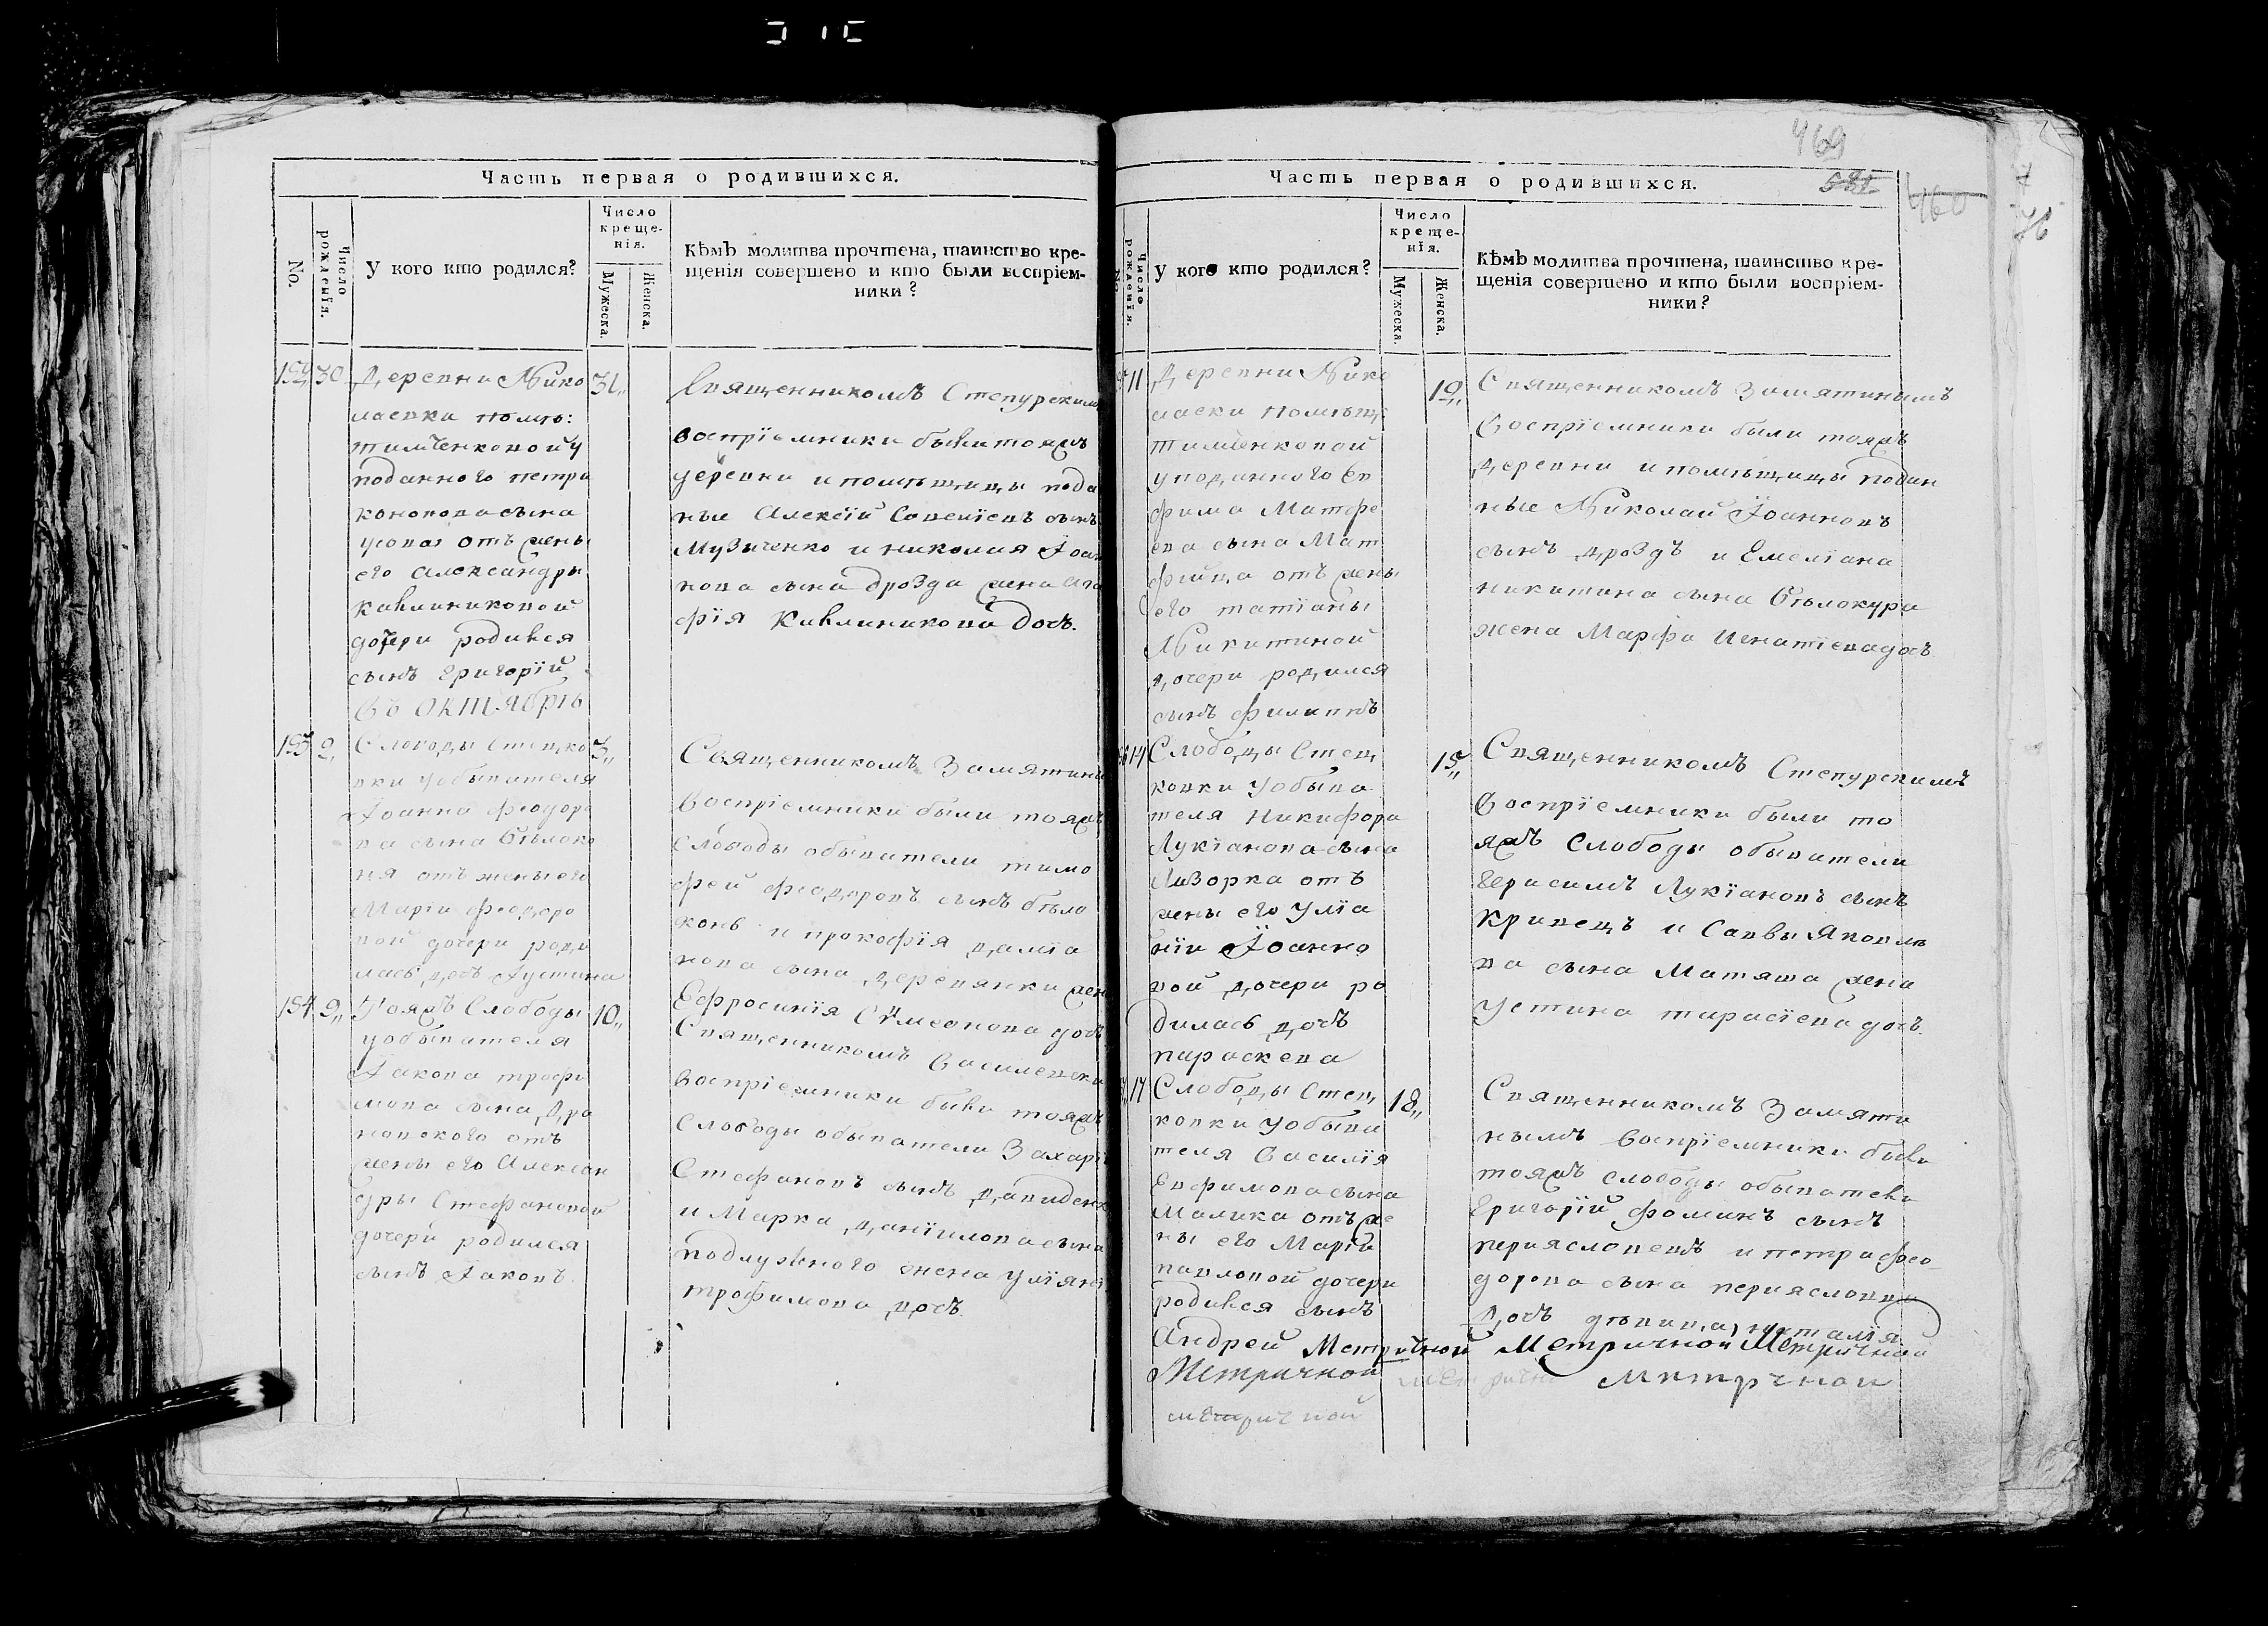 469
Часть первая о родившихся.
No.
Число рожденія.
У кого кто родился?
Число креще-
нія.
Мужеска.
Женска.
Кѣмъ молитва прочтена, таинство кре-
щенія совершено и кто были воспріем-
ники?
152 30 Деревни Нико 31
лаевки помѣ:
тимченковой у
поданного петра
кононова сына
усова отъ жены
его Александры
Кавлиниковой
дочери родився
сынъ Григорій
Священникомъ Степурскимъ
воспріемники были тояжъ
деревни и помѣщицы пода
ные Алексій Савеліевъ сынъ
Музыченко и николая Іоан
нова сына дрозда жена Ага
фія Кавлиникова дочь.
Въ Октябрѣ
153 2 Слободы Стецко 3
вки у обывателя
Іоанна Феодоро
ва сына Бѣлоко
ня отъ жены его
Маріи Феодоро
вой дочери роди
лась дочь Іустина
Священникомъ Замятины
Воспріемники были тояжъ
Слободы обыватели тимо
фей Феодоровъ сынъ бѣло
конь и прокофія даміа
нова сына деревянки жена
Ефросинія Симеонова дочь
154 9 Тояжъ Слободы 10
у обывателя
Іакова трофи
мова сына Дра
новского отъ
жены его Алексан
дры Стефановой
дочери родился
сынъ Іаковъ.
Священникомъ Василевски
Воспріемники были тояжъ
Слободы обыватели Захарі
Стефановъ сынъ Давиденк
и Марка Даніилова сына
подлузного жена Уліяні
трофимова дочь.
Часть первая о родившихся.
460
76
No.
Число рожденія.
У кого кто родился?
Число креще-
нія.
Мужеска.
Женска.
Кѣмъ молитва прочтена, таинство кре-
щенія совершено и кто были воспріем-
ники?
11 Деревни Нико 12
лаеки помѣщ:
тимченковой
у поданного Ев
фима Матфе
ева сына Мат
фійца отъ жены
его татіаны
Никитиной
дочери родился
сынъ филиппъ
Священникомъ Замятинимъ
Воспріемники были тояжъ
деревни и помѣщицы подан
ные Николай Іоанновъ
сынъ дроздъ и Емеліана
никитина сына Бѣлокура
жена Марфа Игнатіева дочь
14 Слободы Стец 15
ковки у обыва
теля Никифора
Лукіанова сына
Лазорка отъ
жены его Уліа
ніи Іоанно
вой дочери ро
дилась дочь
параскева
Священникомъ Степурскимъ
Воспріемники были то
яжъ Слободы обыватели
Герасимъ Лукіановъ сынъ
Кривецъ и Саввы Яковле
ва сына Матяша жена
Устина тарасіева дочь.
17 Слободы Стец 18
ковки у обыва
теля Василія
Евфимова сына
Малика отъ же
ны его Маріи
павловой дочери
родився сынъ
Андрей
Священникомъ Замяти
нымъ Воспріемники были
тояжъ слободы обыватели
Григорій фоминъ сынъ
перяславецъ и петра фео
дорова сына периясловца
дочь дѣвица, наталія
Метричной Метричной Метричной
Метричной Метричной Метрчной
метричной